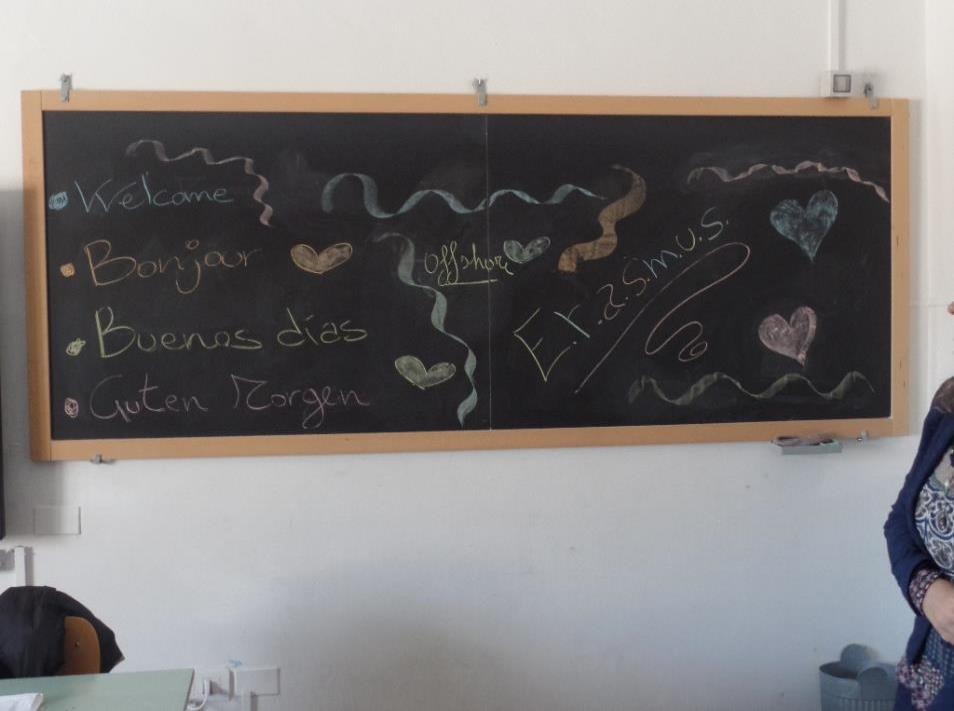 Welcome
Bonjour
Buenos días
Guten Morgen
offshore
E.r.a.s.m.u.s.